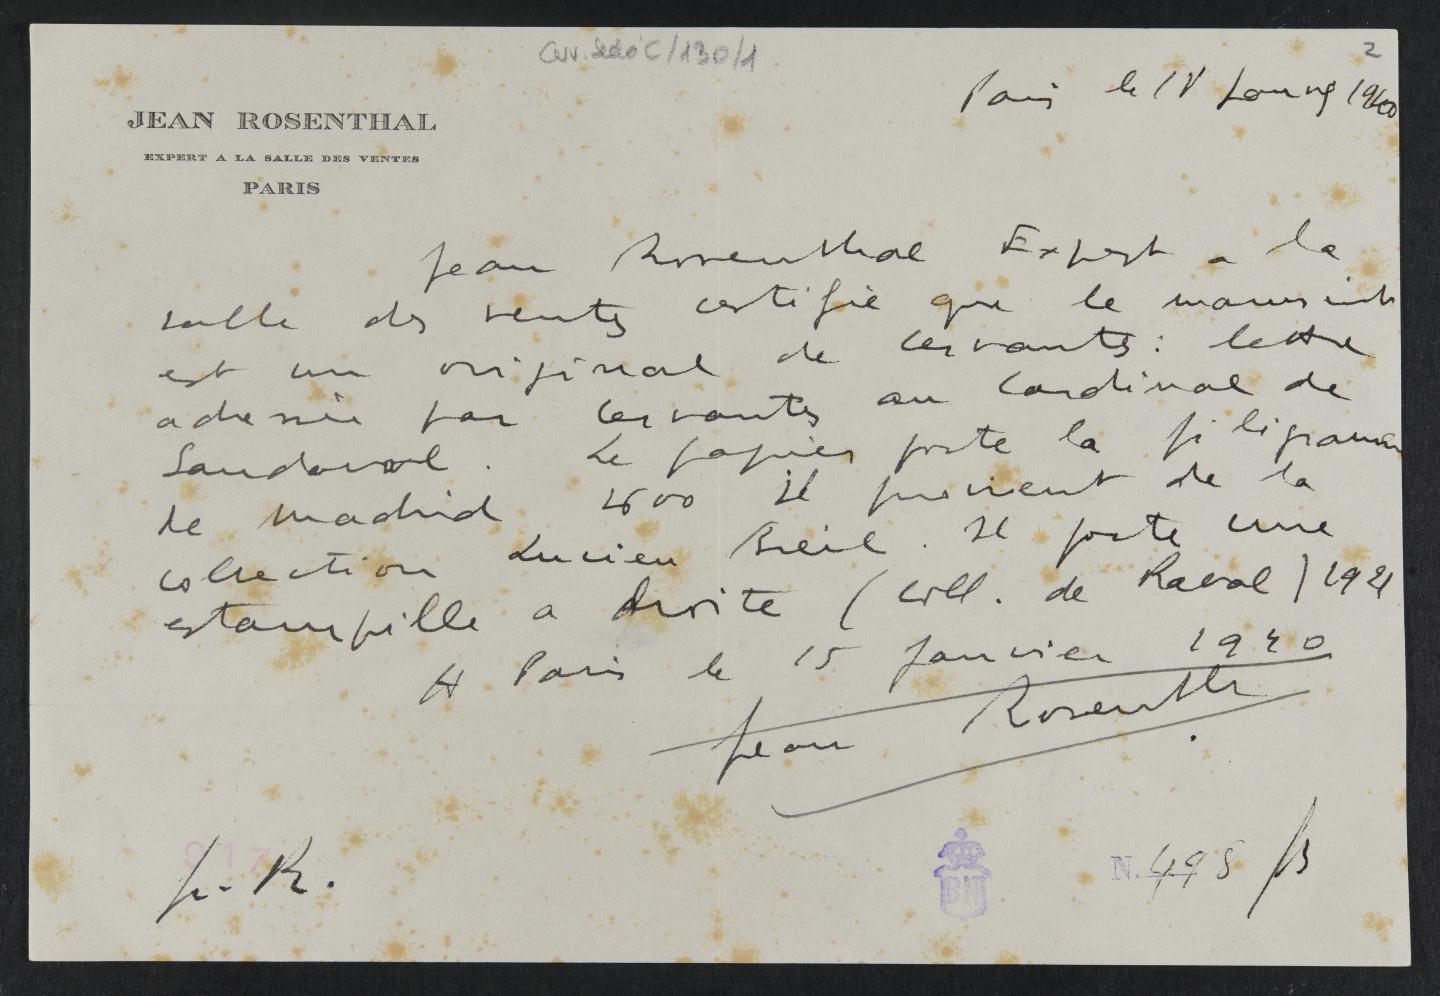 Cerv. Sedó C/130/1
2
Paris le 1940
JEAN ROSENTHAL
EXPERT A LA SALLE DES VENTES
PARIS
Jean Rosenthal Expert a la
salle des ventes certifie que le manuscrit
est un original de Cervantes : lettre
adressée par Cervantes au Cardinal de
Sandoval. Le papier porte la filigramme
de Madrid 1600 Il provient de la
collection Lucien Breil. Il porte une
estampille a droite (coll. de Raval) 1921
Paris le 15 Janvier 1940
Jean Rosenthal
917
J. R.
BN
N. 498